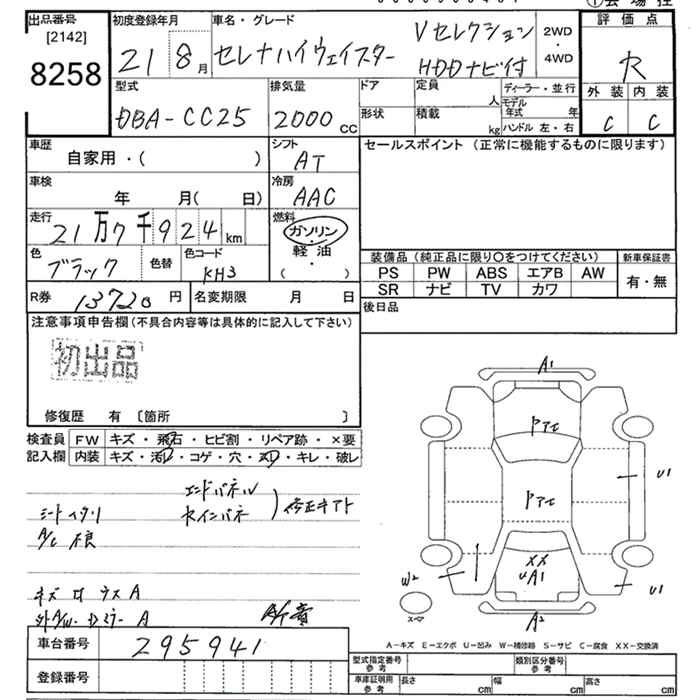 ①会場控
出品番号
[2142]
8258
初度登録年月
21 8月
車名・グレード
セレナハイウェイスター
Vセレクション
HDDナビ付
2WD
・
4WD
評価点
R
外装 内装
C C
型式
DBA-CC25
排気量
2000 CC
ドア
形状
定員 人
積載 kg
ディーラー・並行
モデル年式 年
ハンドル 左・右
車歴
自家用・( )
シフト
AT
セールスポイント (正常に機能するものに限ります)
車検
年 月( 日)
冷房
AAC
走行
21万7千924km
燃料
ガソリン
・
軽油
・
( )
色
ブラック
色替
色コード
KH3
装備品 (純正品に限り〇をつけてください)
新車保証書
PS PW ABS エアB AW
SR ナビ TV カワ
有・無
R券 13720円
名変期限 月 日
後日品
注意事項申告欄 (不具合内容等は具体的に記入して下さい)
初出品
修復歴 有 〔箇所 〕
検査員
記入欄
FW キズ・飛石・ヒビ割・リペア跡・×要
内装 キズ・汚レ・コゲ・穴・スレ・キレ・破レ
エンドパネル
セインパネ
修正キアト
シートヘタリ
A/C 不良
キズ
A
A
車台番号 295941
登録番号
A1
トアエ
トアエ
U1
XX
UA1
W2
U1
スペア
A2
A－キズ E－エクボ U－凹み W－補修跡 S－サビ C－腐食 XX－交換済
型式指定番号
参考
類別区分番号
参考
車庫証明用
参考
長さ cm 幅 cm 高さ cm